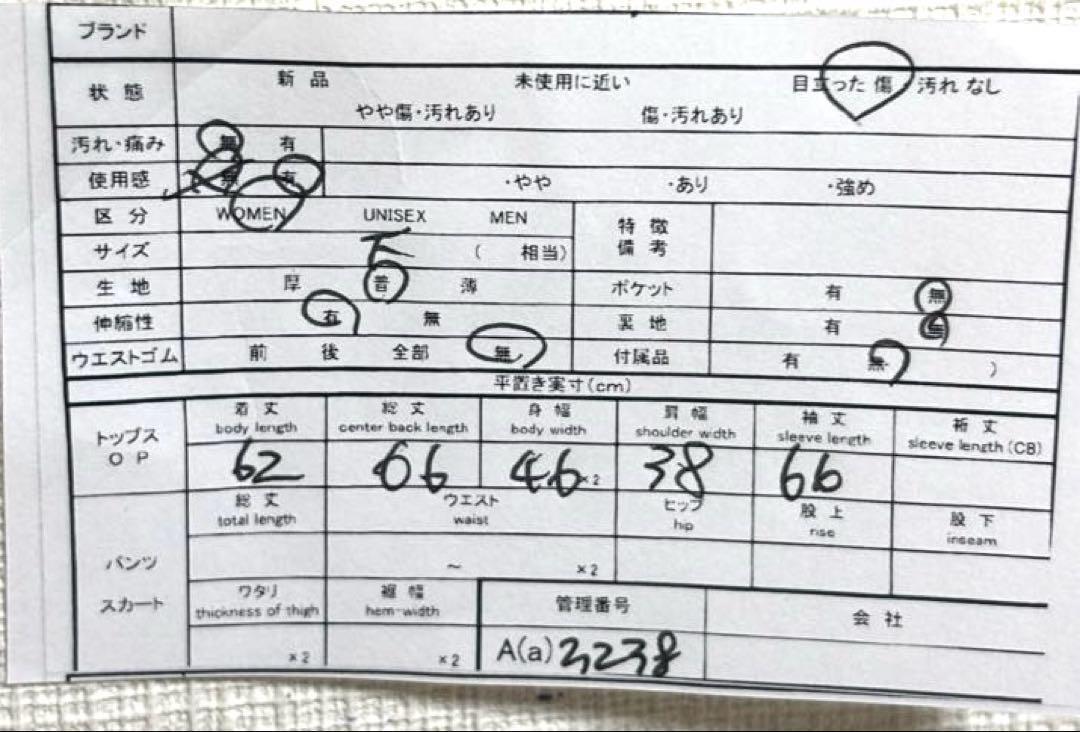 ブランド
状態 新品 未使用に近い 目立った傷・汚れなし
やや傷・汚れあり 傷・汚れあり
汚れ・痛み 無 有
使用感 無 有 ・やや ・あり ・強め
区分 WOMEN UNISEX MEN 特徴
備考
サイズ ( 相当)
生地 厚 普 薄 ポケット 有 無
伸縮性 有 無 裏地 有 無
ウエストゴム 前 後 全部 無 付属品 有 無 )
平置き実寸(cm)
トップス
OP
着丈 総丈 身幅 肩幅 袖丈 裄丈
body length center back length body width shoulder width sleeve length sleeve length(CB)
62 66 46×2 38 66
総丈 ウエスト ヒップ 股上 股下
total length waist hip rise inseam
パンツ
スカート
~ ×2
ワタリ 裾幅 管理番号 会社
thickness of thigh hem-width
×2 ×2 A(a)3238